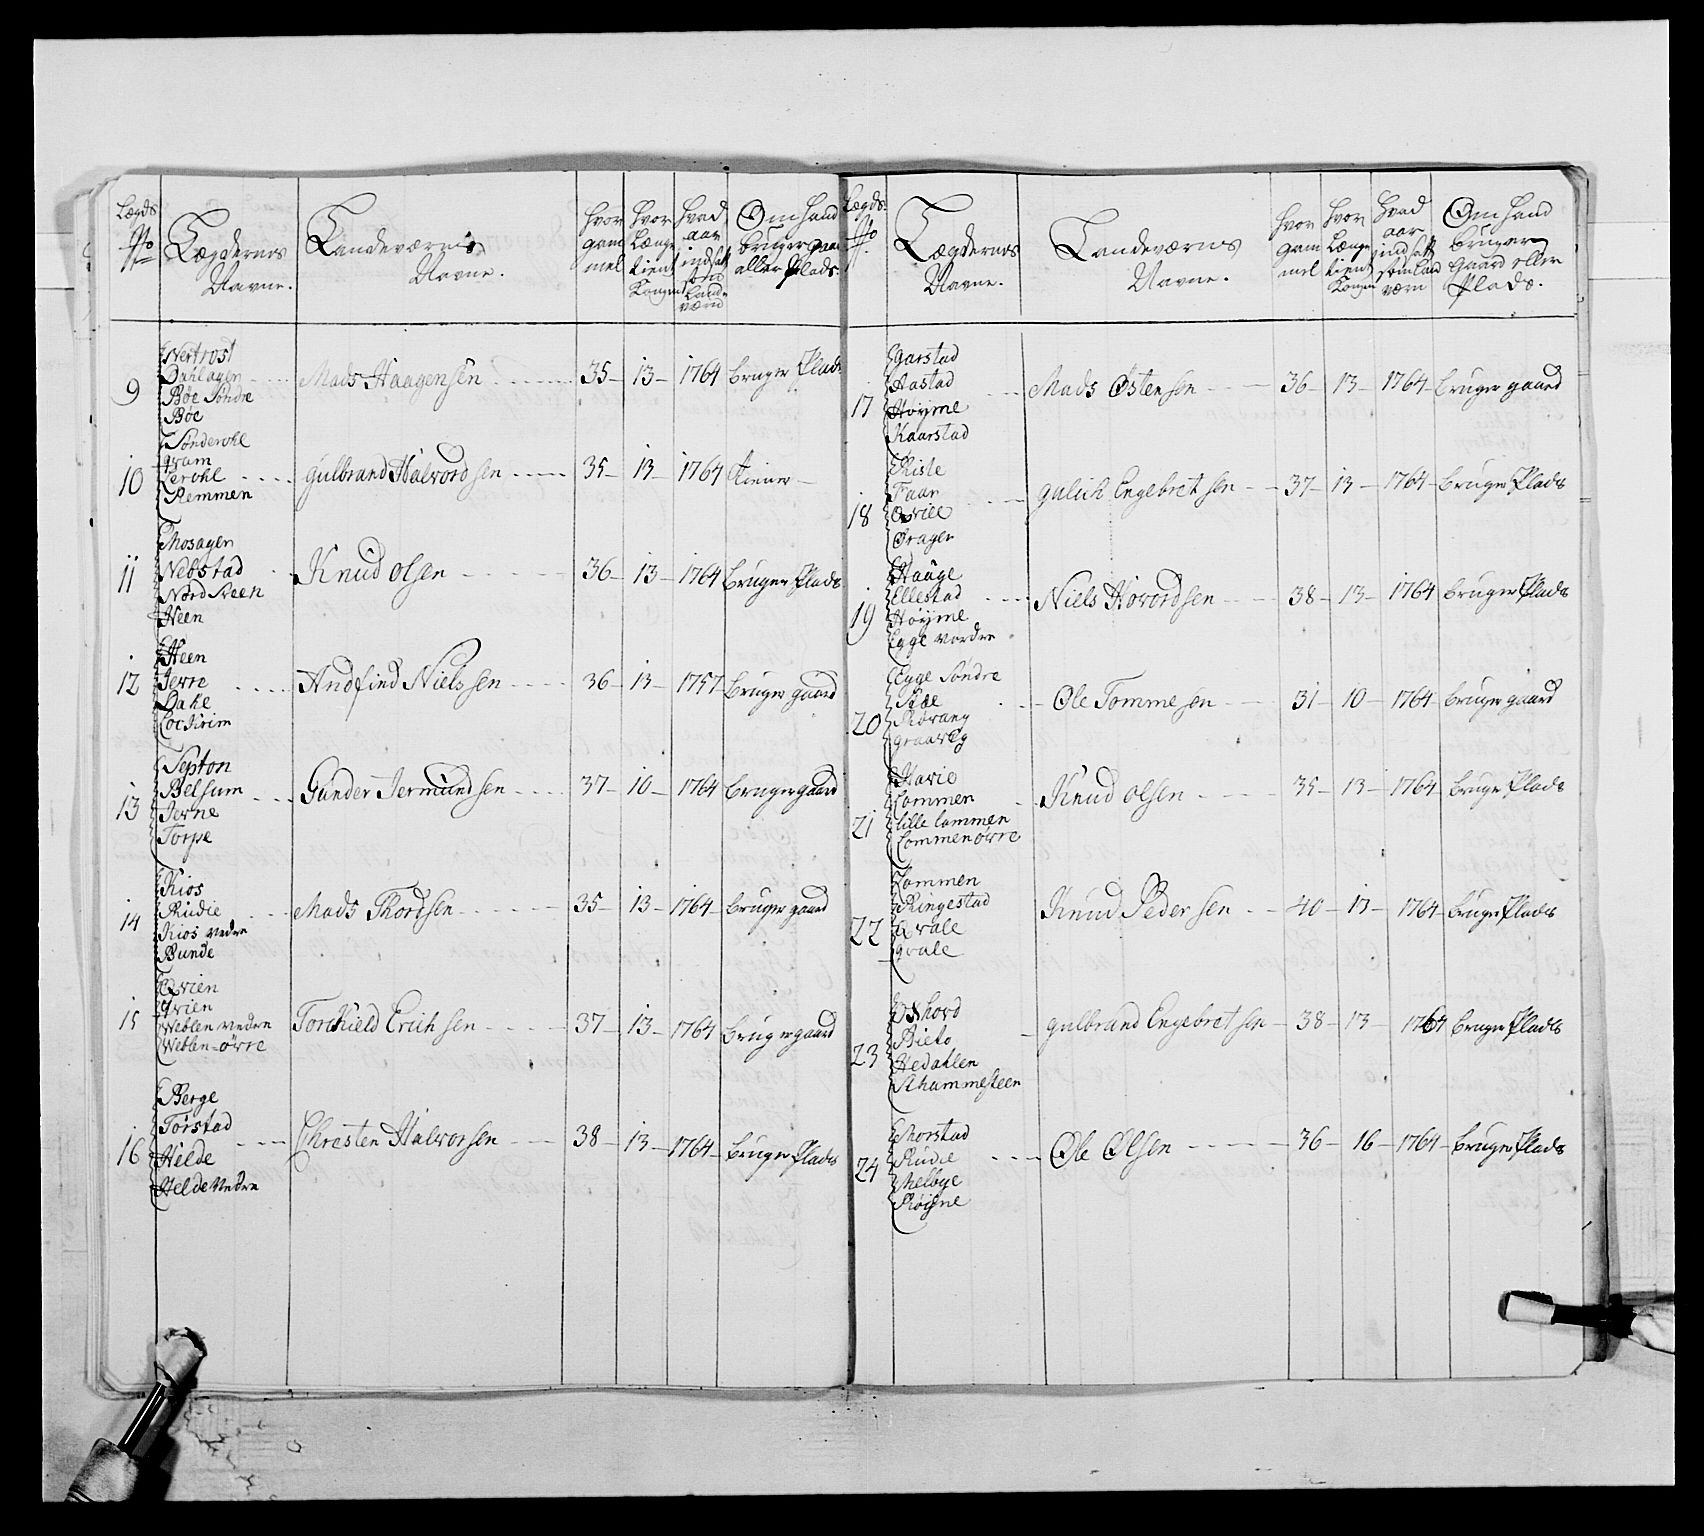 Lægds No
Lægdernes Navne.
Landeværnes Navne.
Hvor gam mel
Hvor Længe tient Kongen
Hvad aar indsatt som Land værn
Om hand bruger gaar eller Plads.
9
Nertrost
Dahlagen
Bøe Søndre
Bøe
Mads Haagensen 35 13 1764 bruger Plads
10
Sønderohl
qvam
Lerohl
Remmen
gulbrand Halvordsen 35 13 1764 tiener
11
Mosagen
Nebstad
Nord Steen
Heen
Knud olsen 36 13 1764 bruger Plads
12
Heen
Jerne
Dake
Lockrim
Andfind Nielssen 36 13 1757 bruger gaard
13
Septon
Belsum
Jerne
Torpe
Gunder Jermundsen 37 10 1764 bruger gaard
14
Kios
Rudie
Kios nedre
Bunde
Mads Thordsen 35 13 1764 bruger gaard
15
Qvien
qvien
Weblen nedre
Weblen-øvre
Torchield Erichsen 37 13 1764 bruger gaard
16
Berge
Torstad
Helde
Helde nedre
Christen Halvorsen 38 13 1764 bruger Plads
Lægds No
Lægdernes Navne.
Landeværns Navne.
Hvor gam mel
Hvor Længe tient Kongen
Hvad aar indsatt som land værn
Om hand bruger Gaard eller Plads.
17
Garstad
Aastad
Høyme
Kaarstad
Mads Østensen 36 13 1764 bruger gaard
18
Riste
Faar
Qviee
Drager
gulich Engebretsen 37 13 1764 bruger Plads
19
Hauge
Ellestad
Høyme
Egge nordre
Niels Hovordsen 38 13 1764 bruger Plads
20
Egge Søndre
Røvang
Ole Tommesen 31 10 1764 bruger gaard
21
Havie
Lommen
lille lommen
Lommen øvre
Knud olsen 35 13 1764 bruger Plads
22
Lommen
Ringestad
Qvale
qvale
Knud Pedersen 40 13 1764 bruger Plads
23
Rieto
Hedahlen
Schammesteen
gulbrand Engebretsen 38 13 1764 bruger Plads
24
Rudie
Melbye
Røigne
Ole Olsen 36 16 1764 bruger Plads